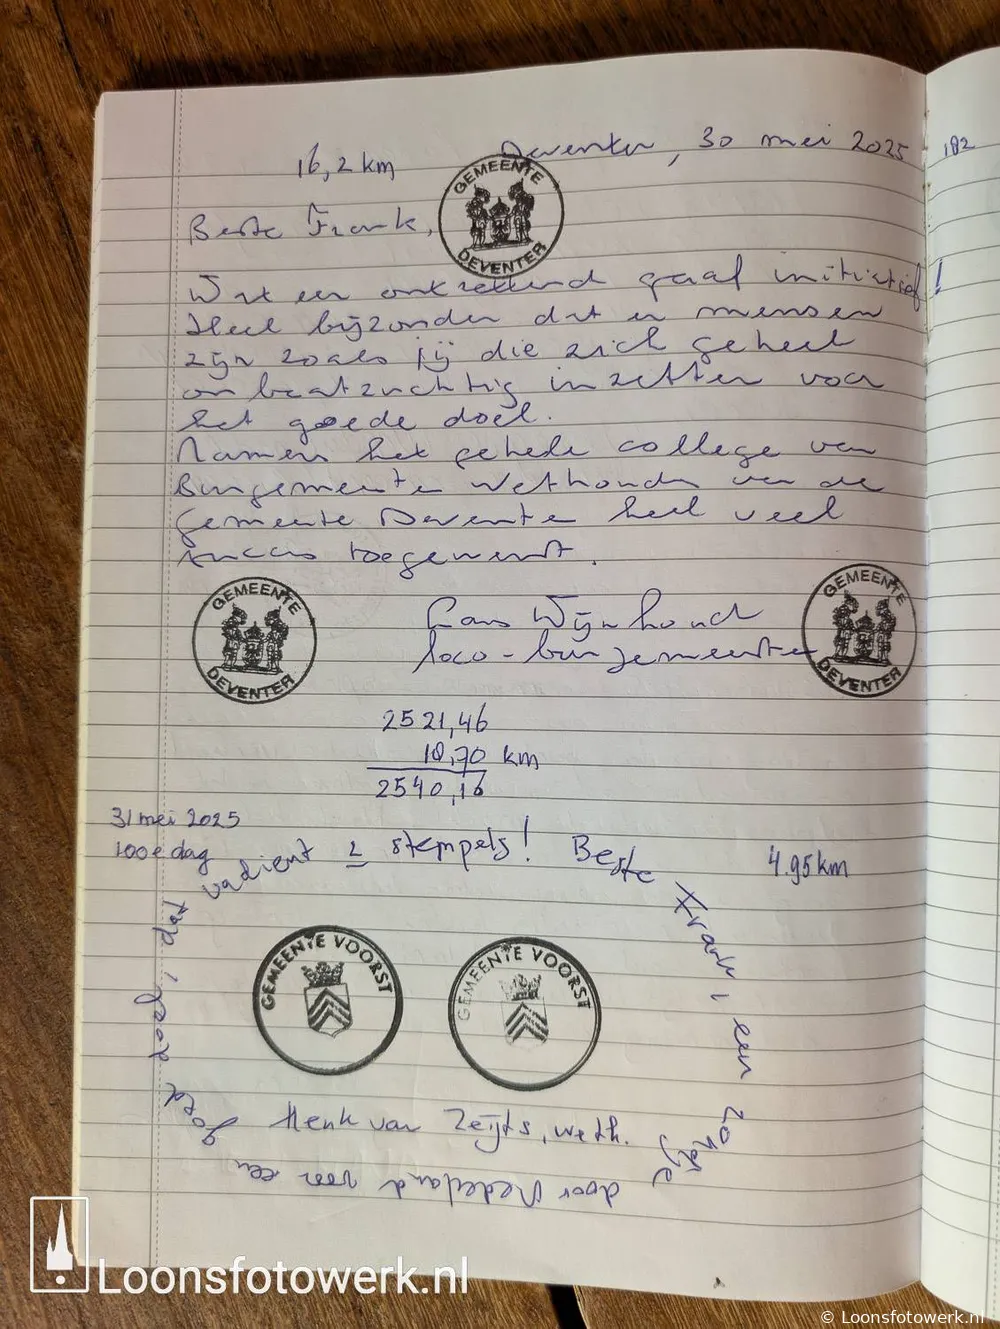 Deventer, 30 mei 2025
182
16,2 km
GEMEENTE DEVENTER
Beste Frank,
Wat een ontzettend gaaf initiatief!
Heel bijzonder dat er mensen
zijn zoals jij die zich geheel
onbaatzuchtig inzetten voor
het goede doel.
Namens het gehele college van
Burgemeester Wethouders van de
gemeente Deventer heel veel
succes toegewenst.
GEMEENTE DEVENTER
Wijnhoud
loco-burgemeester
GEMEENTE DEVENTER
2521,46
18,70 km
2540,16
31 mei 2025
100e dag
4.95 km
Beste Frank, een zonnetje door Nederland voor een goed doel, dat verdient 2 stempels!
GEMEENTE VOORST
GEMEENTE VOORST
Henk van Zeijts, weth.
Loonsfotowerk.nl
© Loonsfotowerk.nl